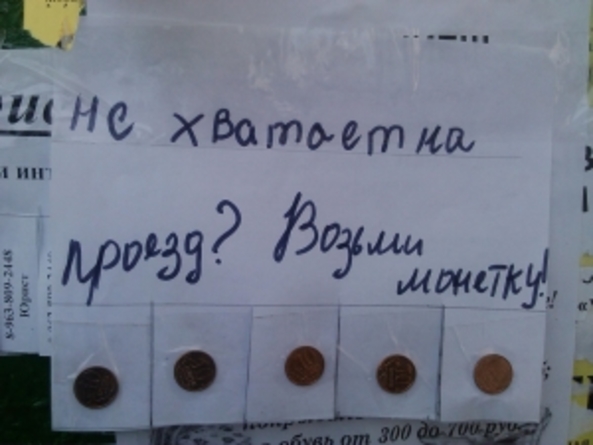 не хватает на
проезд? Возьми
монетку!
и инт
8-963-809-2448
Юрист
обувь от 300 до 700 руб.